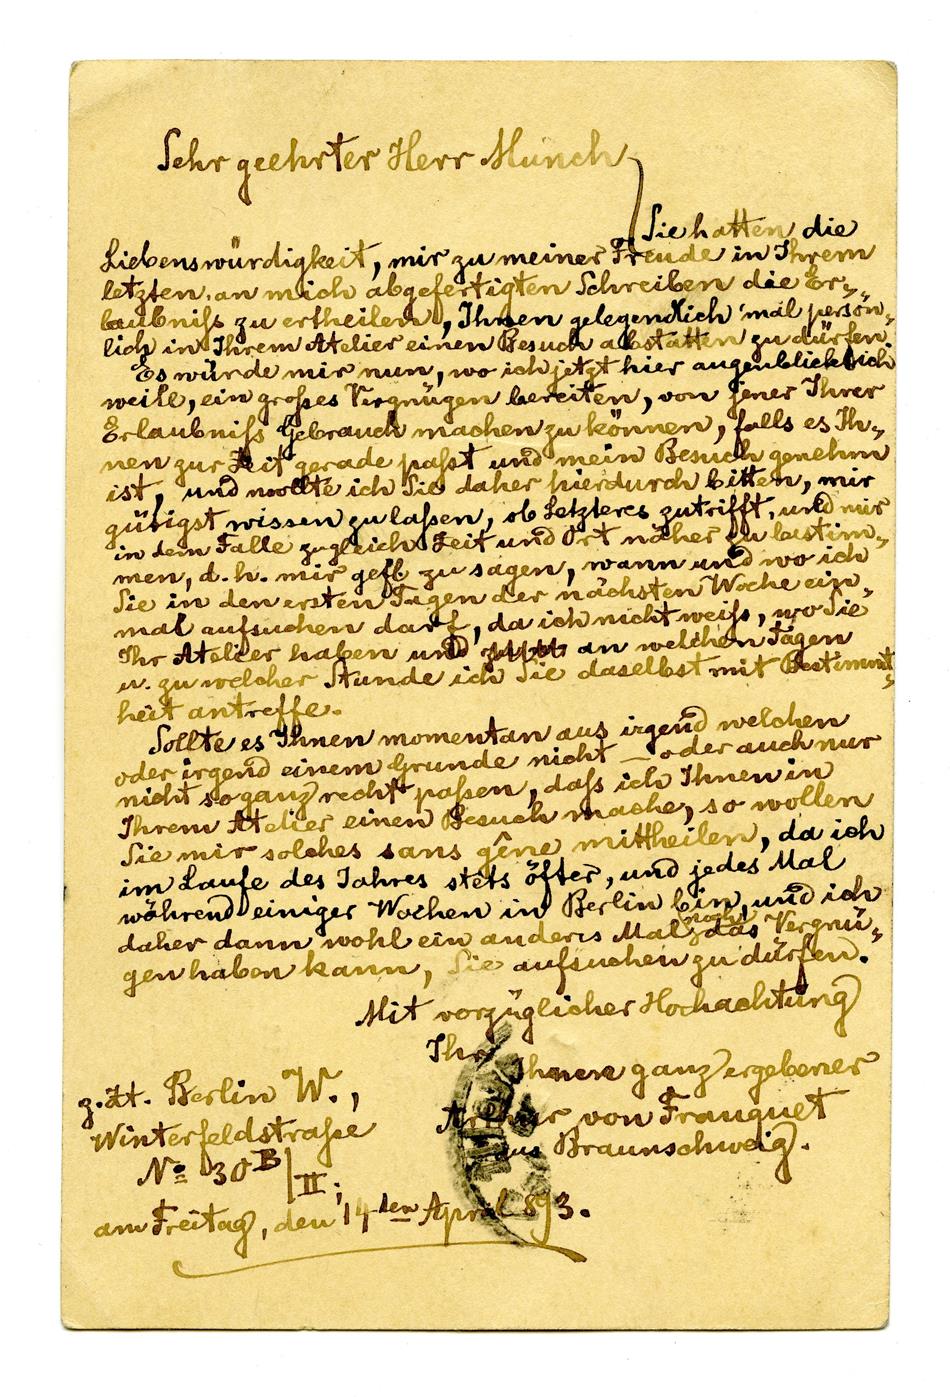 Sehr geehrter Herr Munch,
Sie hatten die
Liebenswürdigkeit, mir zu meiner Freude in Ihrem
letzten, an mich abgefertigten Schreiben die Er-
laubniß zu ertheilen, Ihnen gelegendlich 'mal persön-
lich in Ihrem Atelier einen Besuch abstatten zu dürfen.
Es würde mir nun, wo ich jetzt hier augenblicklich
weile, ein großes Vergnügen bereiten, von jener Ihrer
Erlaubniß Gebrauch machen zu können, falls es Ih-
nen zur Zeit gerade paßt und mein Besuch genehm
ist, und wollte ich Sie daher hierdurch bitten, mir
gütigst wissen zu laßen, ob Letzteres zutrifft, und mir
in dem Falle zugleich Zeit und Ort näher zu bestim-
men, d. h. mir gefl. zu sagen, wann und wo ich
Sie in den ersten Tagen der nächsten Woche ein-
mal aufsuchen darf, da ich nicht weiß, wo Sie
Ihr Atelier haben und an welchen Tagen
u. zu welcher Stunde ich Sie daselbst mit Bestimmt-
heit antreffe.
Sollte es Ihnen momentan aus irgend welchen
oder irgend einem Grunde nicht – oder auch nur
nicht so ganz recht paßen, daß ich Ihnen in
Ihrem Atelier einen Besuch mache, so wollen
Sie mir solches sans gêne mittheilen, da ich
im Laufe des Jahres stets öfter, und jedes Mal
während einiger Wochen in Berlin bin, und ich
daher dann wohl ein anderes Mal noch das Vergnü-
gen haben kann, Sie aufsuchen zu dürfen.
Mit vorzüglicher Hochachtung
Ihr
Ihnen ganz ergebener
Arthur von Franquet
aus Braunschweig.
z. Zt. Berlin W.,
Winterfeldstraße
No 30 B/II;
am Freitag, den 14ten April 893.